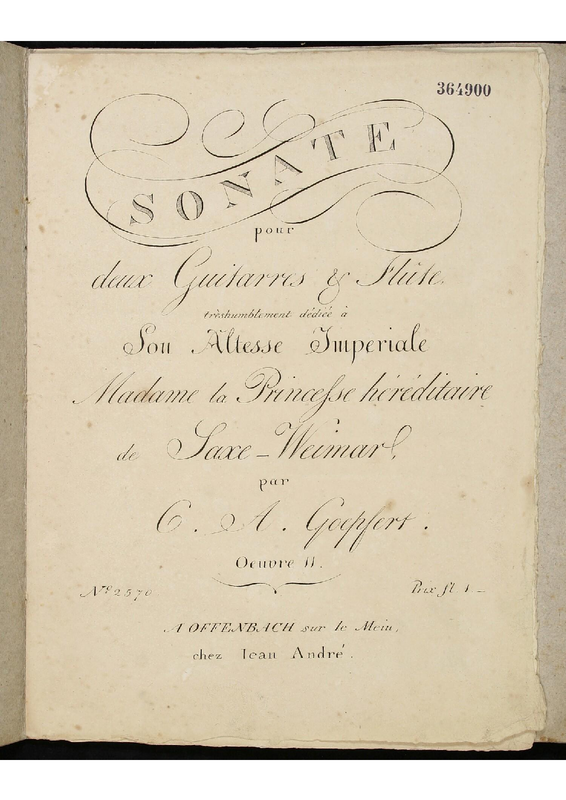 364900
SONATE
pour
deux Guitarres & Flûte,
trèshumblement dédiée à
Son Altesse Imperiale
Madame la Princesse héréditaire
de Saxe-Weimar,
par
C. A. Goepfert.
Oeuvre 11.
Nº 2570
Prix fl 1 –
A OFFENBACH sur le Mein,
chez Iean André.